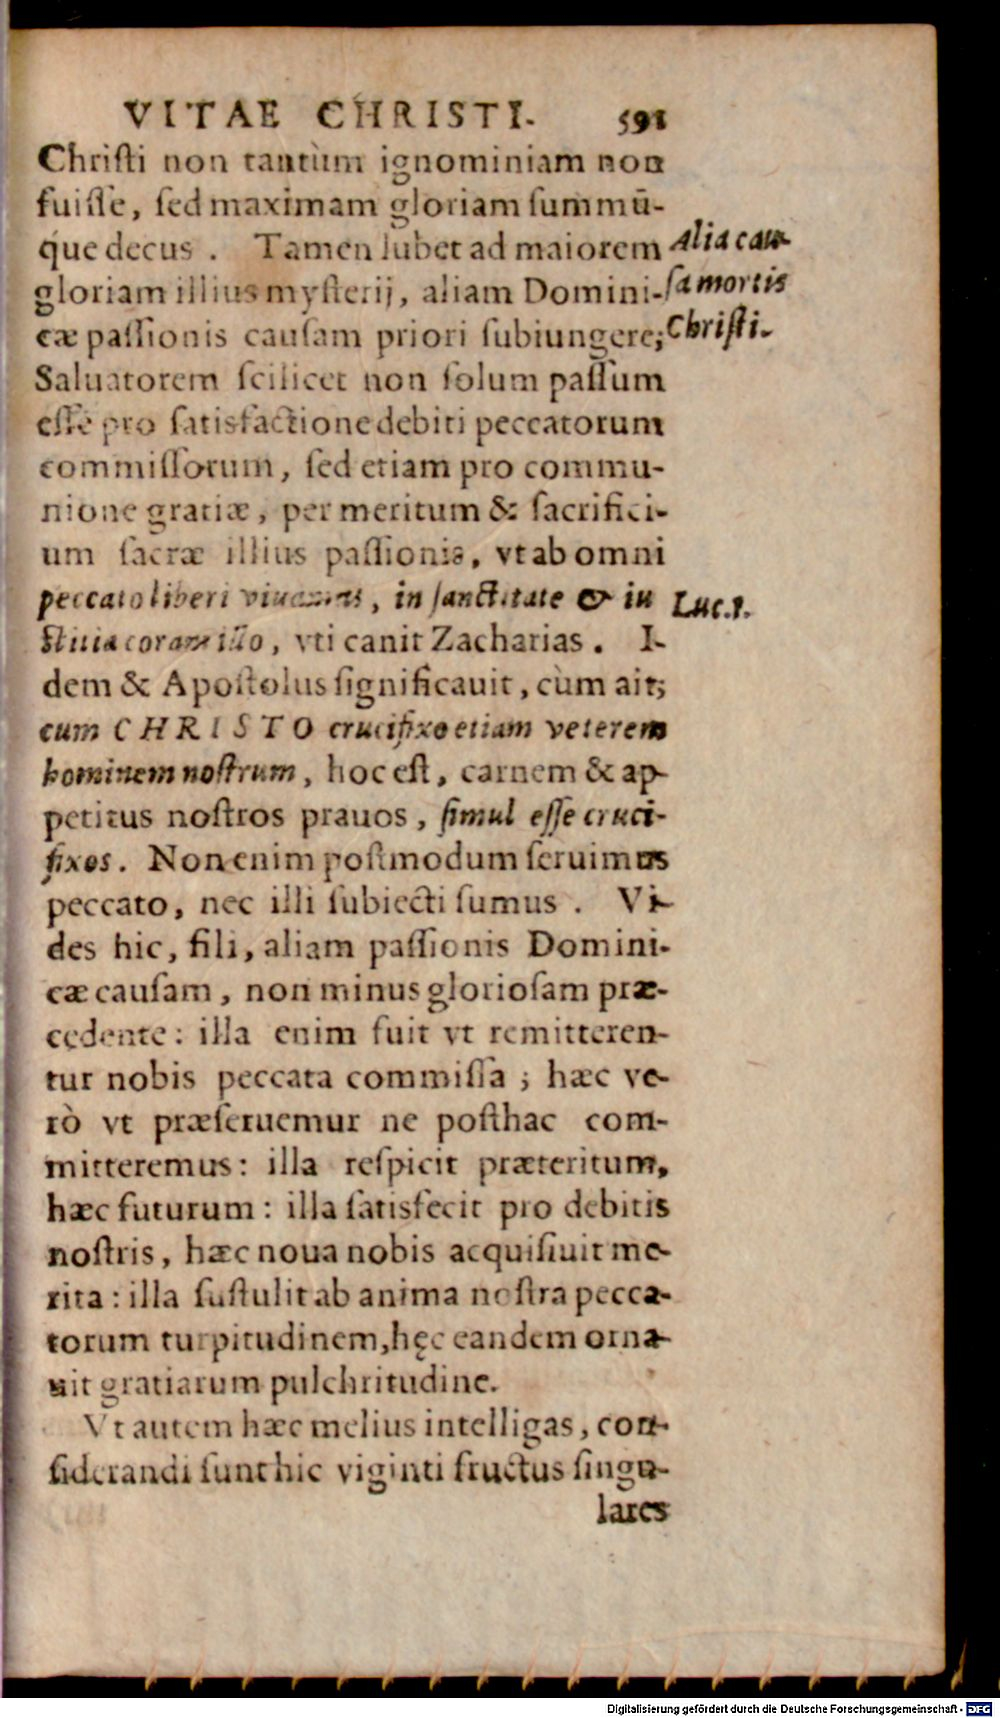 VITAE CHRISTI. 591
Chriſti non tantùm ignominiam non
fuiſſe, ſed maximam gloriam ſummū-
que decus . Tamen lubet ad maiorem
gloriam illius myſterij, aliam Domini-
cæ paſſionis cauſam priori ſubiungere;
Alia cau-
ſa mortis
Chriſti.
Saluatorem ſcilicet non ſolum paſſum
eſſe pro ſatisfactione debiti peccatorum
commiſſorum, ſed etiam pro commu-
nione gratiæ, per meritum & ſacrifici-
um ſacræ illius paſſionis, vt ab omni
peccato liberi viuamus, in ſanctitate & iu
Luc.1.
ſtitia coram illo, vti canit Zacharias. I-
dem & Apoſtolus ſignificauit, cùm ait;
cum CHRISTO crucifixo etiam veterem
hominem noſtrum, hoc eſt, carnem & ap-
petitus noſtros prauos, ſimul eſſe cruci-
fixos. Non enim poſtmodum ſeruimus
peccato, nec illi ſubiecti ſumus . Vi-
des hic, fili, aliam paſſionis Domini-
cæ cauſam, non minus glorioſam præ-
cedente: illa enim fuit vt remitteren-
tur nobis peccata commiſſa; hæc ve-
rò vt præſeruemur ne poſthac com-
mitteremus: illa reſpicit præteritum,
hæc futurum: illa ſatisfecit pro debitis
noſtris, hæc noua nobis acquiſiuit me-
rita: illa ſuſtulit ab anima noſtra pecca-
torum turpitudinem, hęc eandem orna-
uit gratiarum pulchritudine.
Vt autem hæc melius intelligas, con-
ſiderandi ſunt hic viginti fructus ſingu-
lares
Digitalisierung gefördert durch die Deutsche Forschungsgemeinschaft - DFG